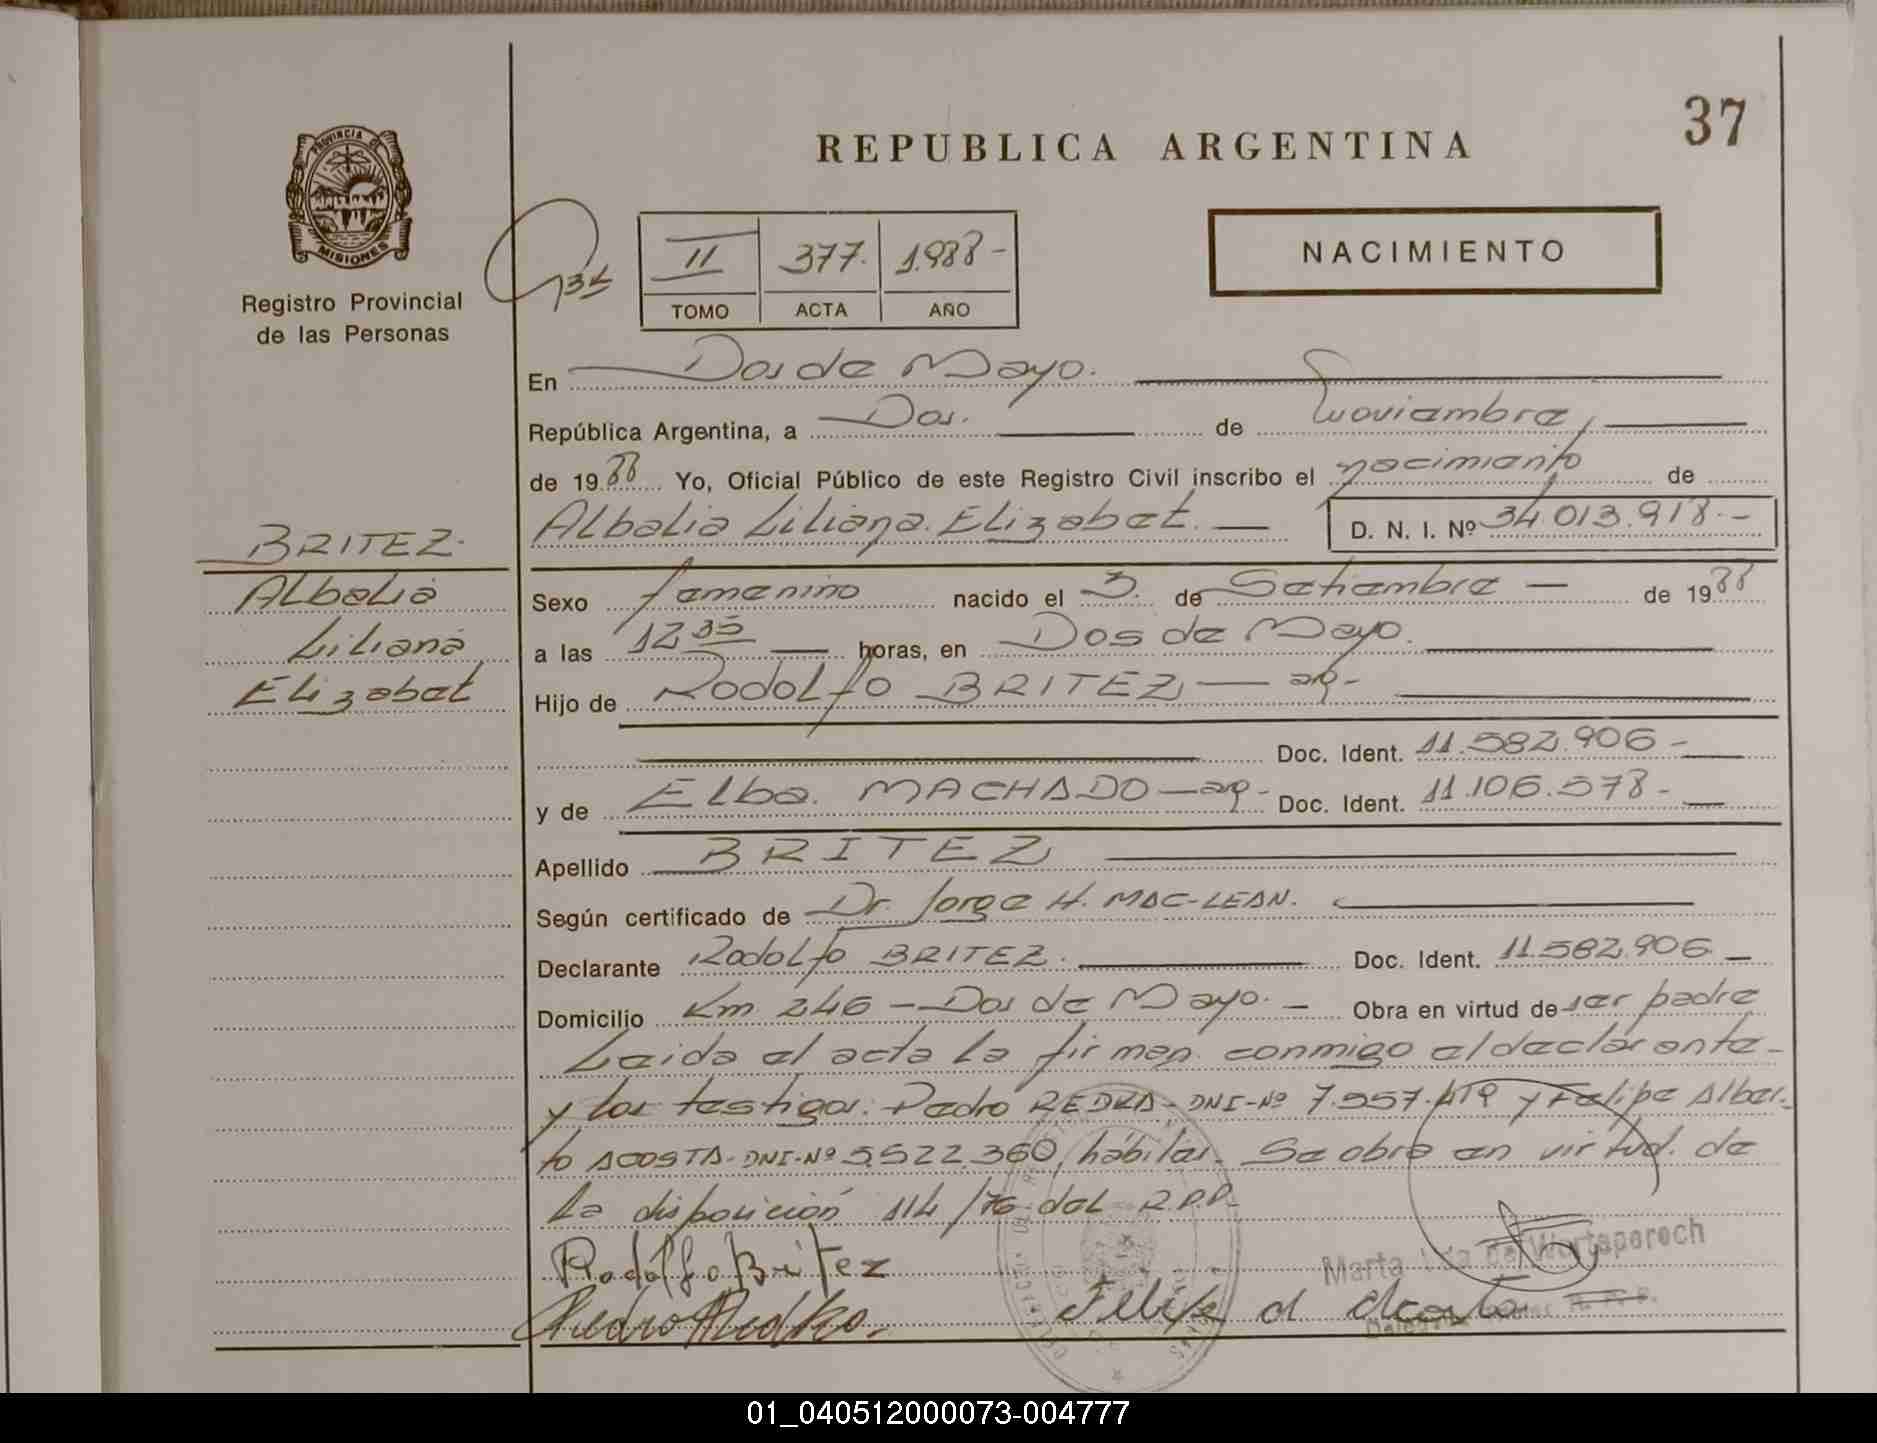 37
REPUBLICA ARGENTINA
PROVINCIA DE
MISIONES
Registro Provincial
de las Personas
II 377. 1.988-
TOMO ACTA AÑO
NACIMIENTO
En Dos de Mayo.
República Argentina, a Dos. de Noviembre,
de 1988 Yo, Oficial Público de este Registro Civil inscribo el nacimiento de
Albelia Liliana Elizabet. D. N. I. Nº 34.013.918.-
BRITEZ.
Albelia
Liliana
Elizabet
Sexo femenino nacido el 3. de Setiembre de 1988
a las 12 35 horas, en Dos de Mayo.
Hijo de Rodolfo BRITEZ, arg-
Doc. Ident. 11.582.906-
y de Elba. MACHADO-arg- Doc. Ident. 11.106.578-
Apellido BRITEZ
Según certificado de Dr. Jorge H. MAC-LEAN.
Declarante Rodolfo BRITEZ. Doc. Ident. 11.582.906.
Domicilio Km 246 - Dos de Mayo. - Obra en virtud de ser padre
Leida el acta la firman conmigo el declarante-
y los testigos: Pedro REDKO-DNI-Nº 7.557.419 y Felipe Alber-
to ACOSTA-DNI-Nº 5.522.360, hábiles. Se obra en virtud de
la disposición 114/76 del R.P.P-
Rodolfo Britez
Pedro Redko.- Felipe A Acosta
Marta
01_040512000073-004777